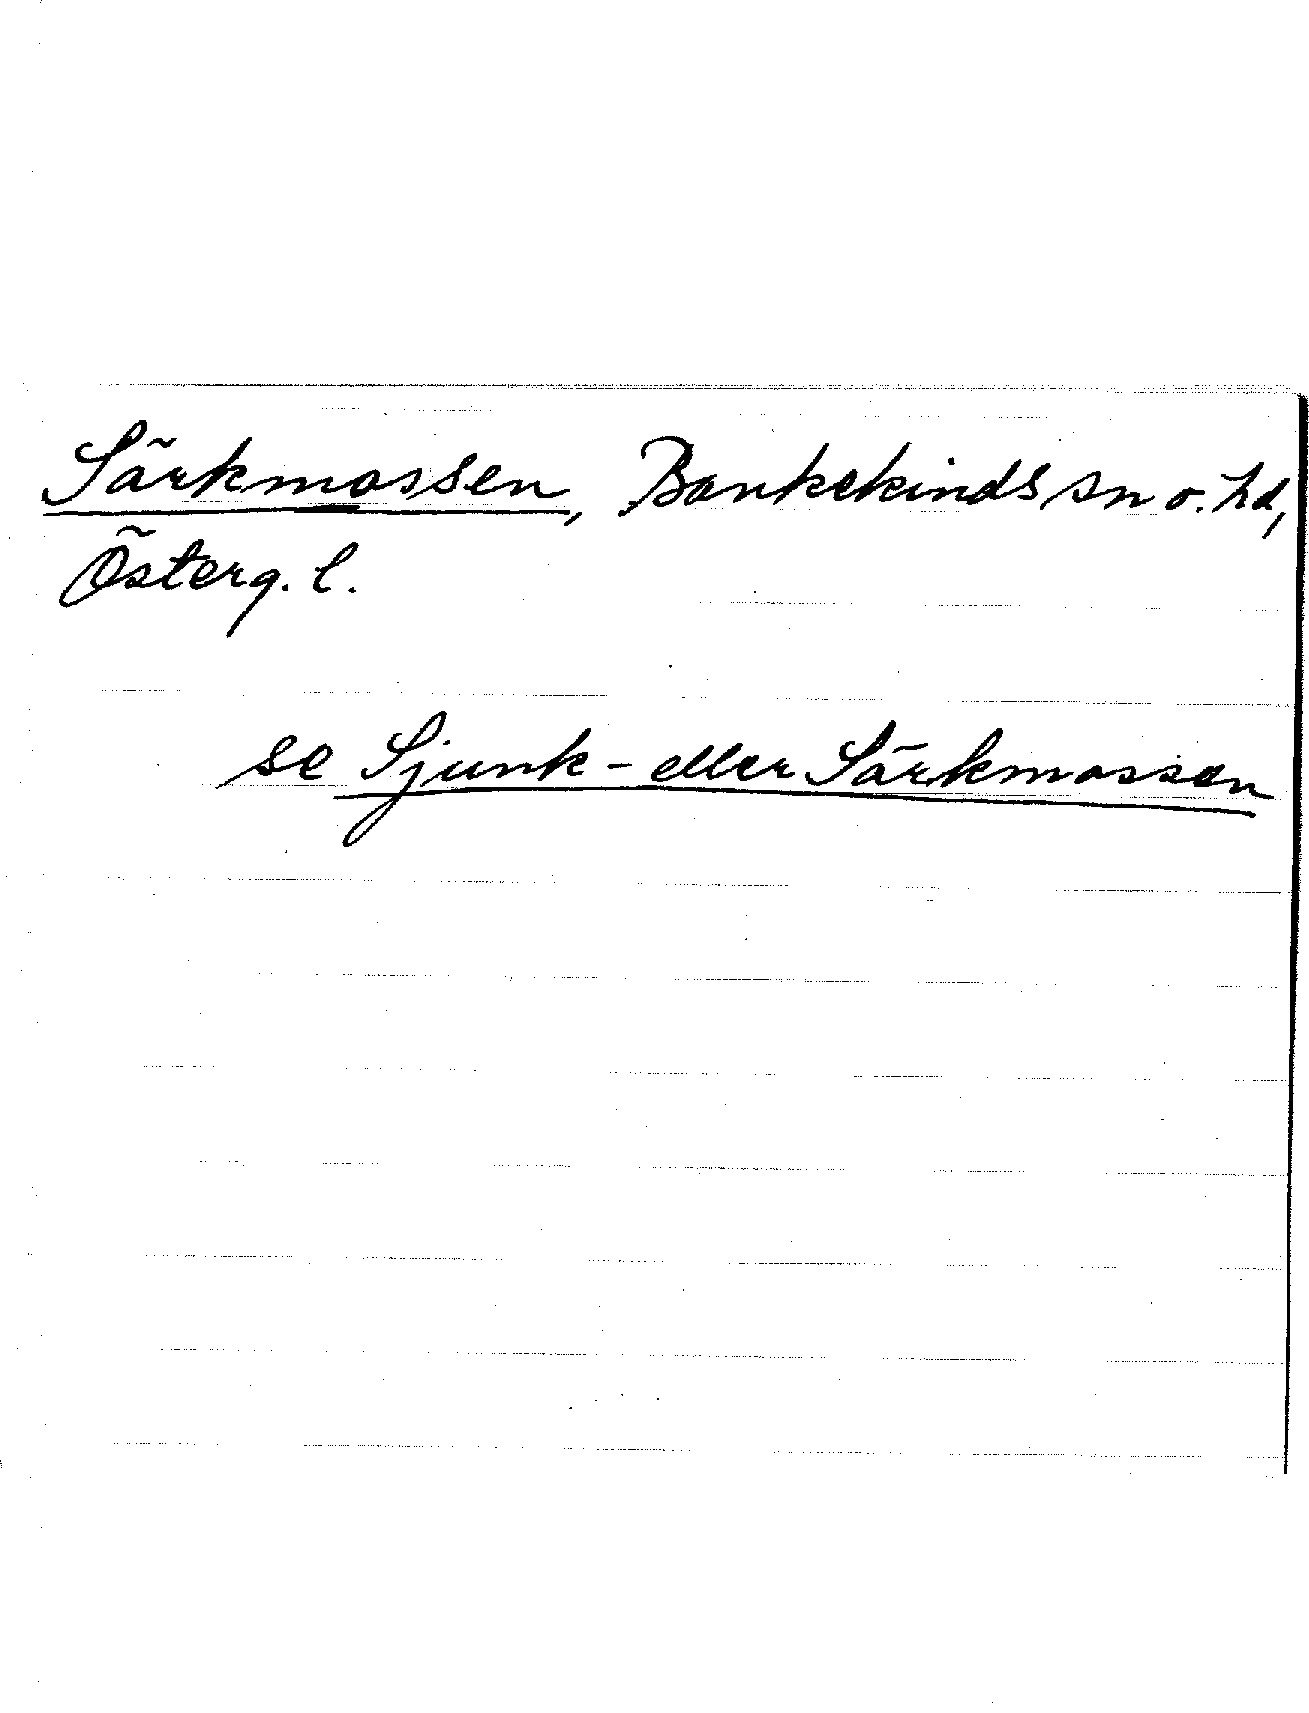 Särkmossen, Bankekinds sn o. hd,
Österg. l.
se Sjunk- eller Särkmossen